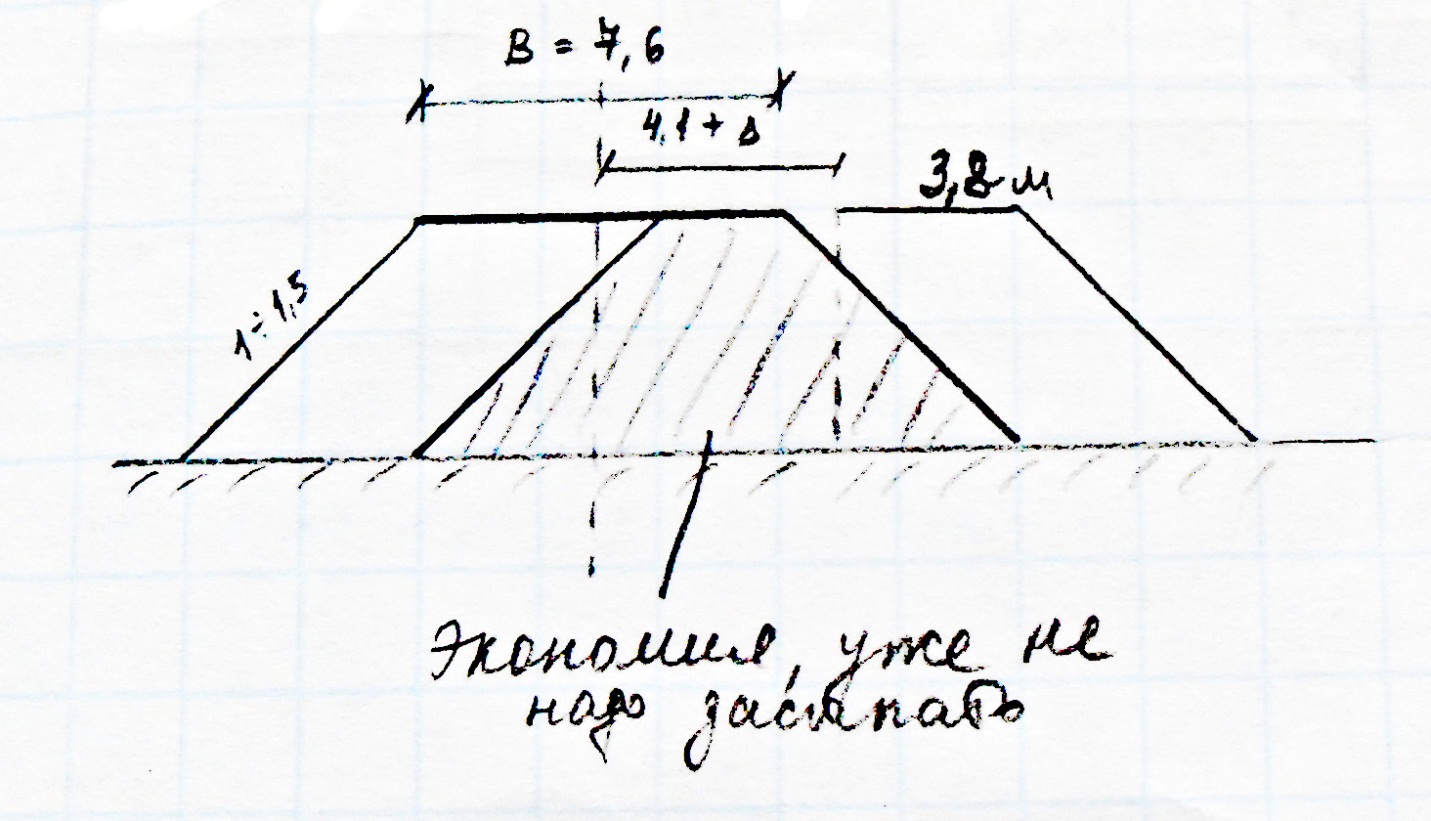 В = 7,6
4,1 + Δ
3,8 м
1÷1,5
Экономия, уже не
надо засыпать